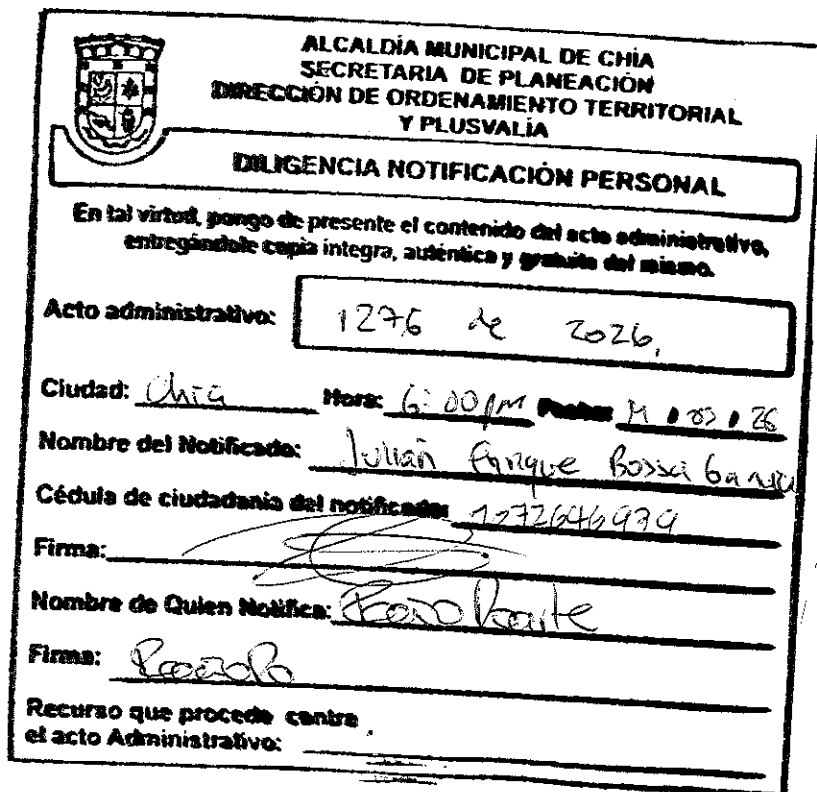 ALCALDÍA MUNICIPAL DE CHÍA
SECRETARIA DE PLANEACIÓN
DIRECCIÓN DE ORDENAMIENTO TERRITORIAL
Y PLUSVALÍA
DILIGENCIA NOTIFICACIÓN PERSONAL
En tal virtud, pongo de presente el contenido del acto administrativo,
entregándole copia integra, auténtica y gratuita del mismo.
Acto administrativo: 1276 de 2026,
Ciudad: Chía Hora: 6:00 pm Fecha: 26
Nombre del Notificado: Julián Enrique
Cédula de ciudadania del notificado: 1072646979
Firma:
Nombre de Quien Notifica:
Firma:
Recurso que procede contra
el acto Administrativo: